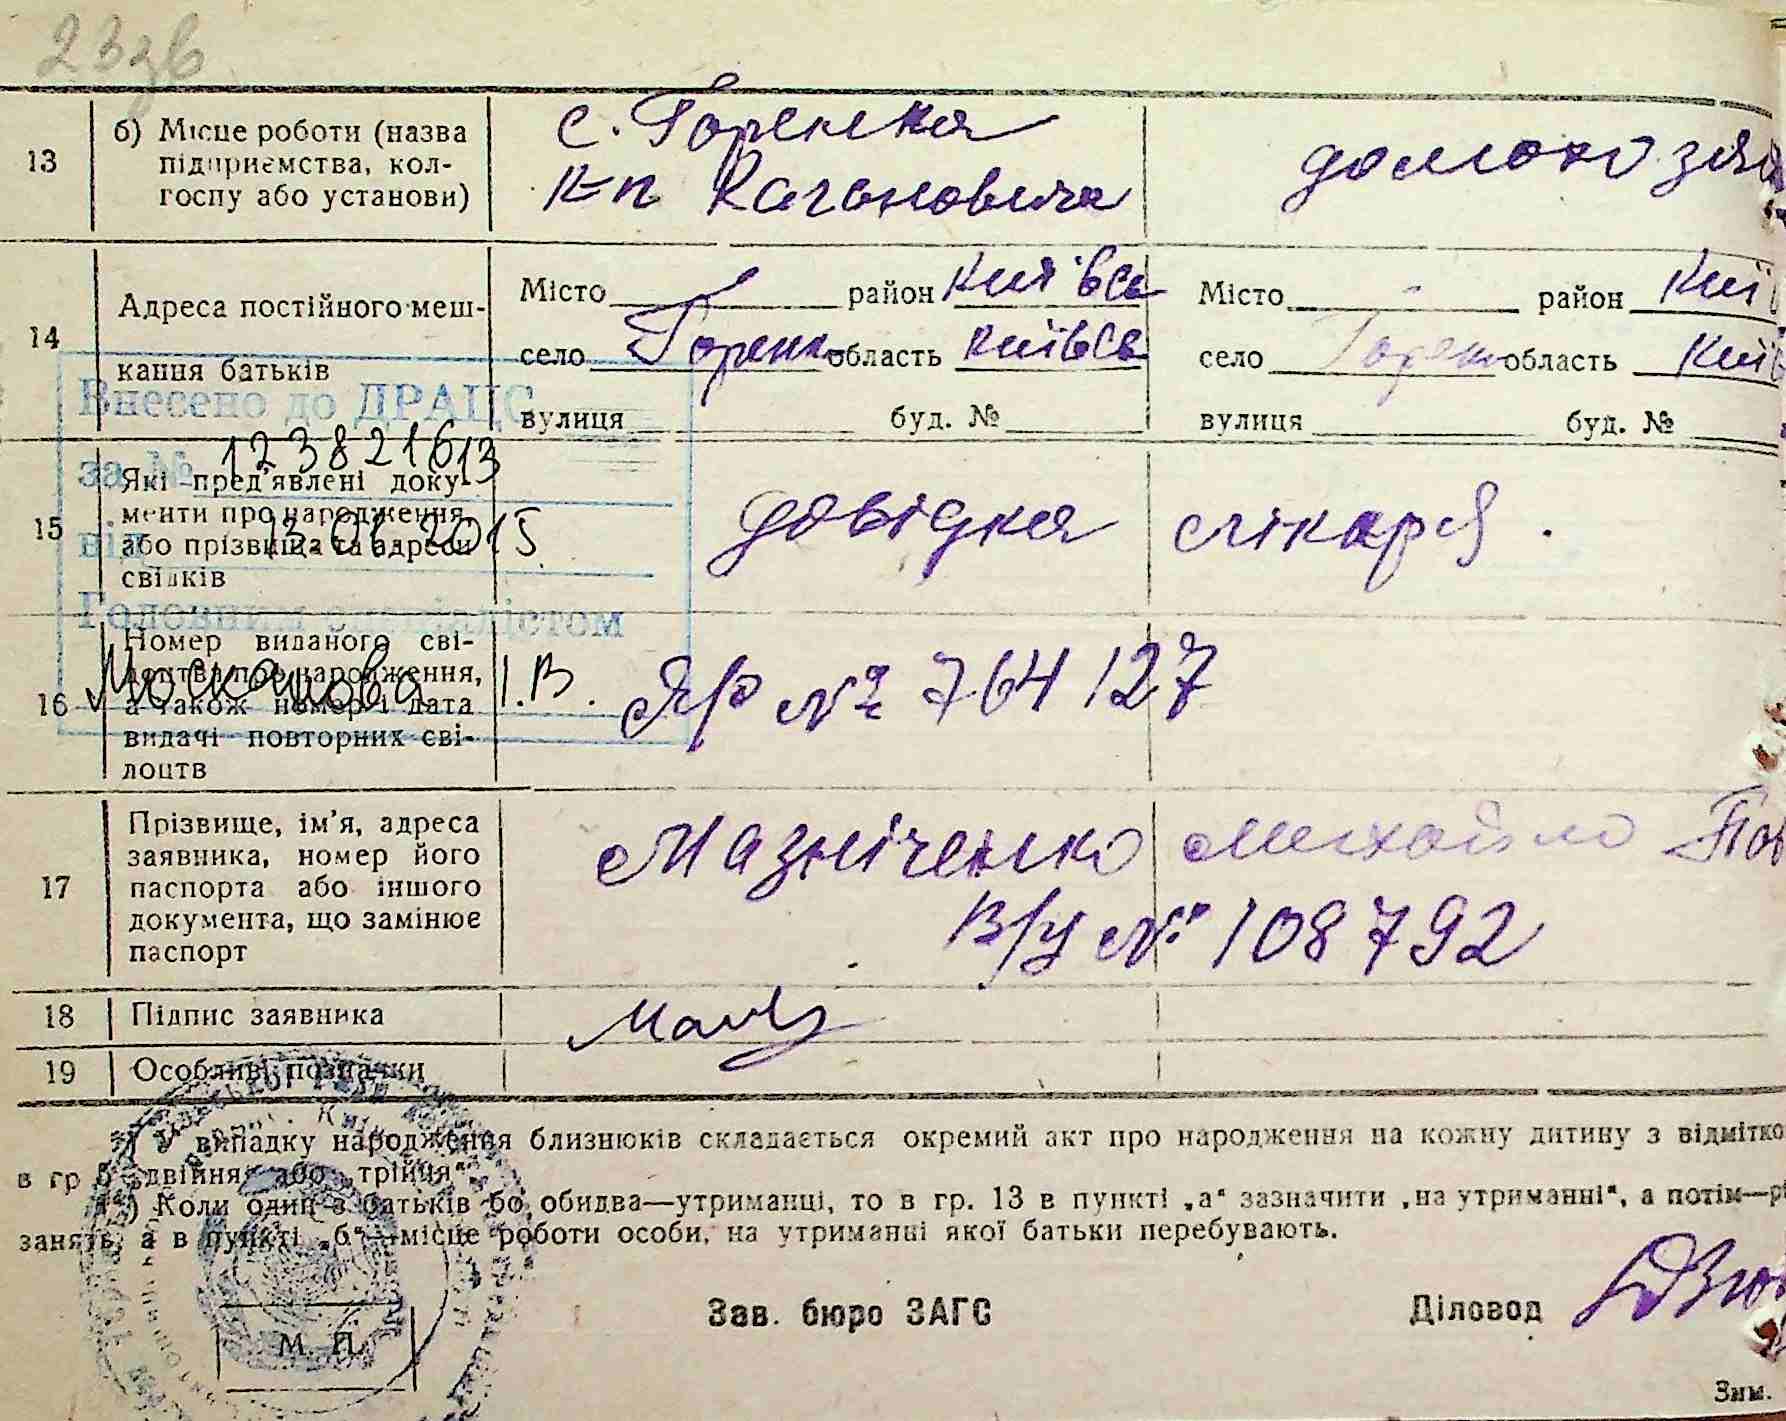 23зв
13
б) Місце роботи (назва
підприємства, кол-
госпу або установи)
с. Горенка
к-п Кагановича
домогозяй
14
Адреса постійного меш-
кання батьків
Місто район Київсь
село Горенк область Київсь
вулиця буд. №
Місто - район Киї
село Горенк область Київ
вулиця буд. №
Внесено до ДРАЦС
за № 123821613
від 13.01.2015
Головним спеціалістом
Москальова І.В.
15
Які пред'явлені доку-
менти про народження
або прізвища та адреси
свідків
довідка лікаря.
16
Номер виданого сві-
доцтва про народження,
а також номер і дата
видачі повторних сві-
доцтв
ЯР № 764127
17
Прізвище, ім'я, адреса
заявника, номер його
паспорта або іншого
документа, що замінює
паспорт
Мазніченко Михайло Пав
В/у № 108792
18
Підпис заявника
19
Особливі позначки
*) У випадку народження близнюків складається окремий акт про народження на кожну дитину з відмітко
в гр 5 „двійня“ або „трійця“
**) Коли один з батьків бо обидва—утриманці, то в гр. 13 в пункті „а“ зазначити „на утриманні“, а потім—рі
занять, а в пункті „б“—місце роботи особи, на утриманні якої батьки перебувають.
Зав. бюро ЗАГС
Діловод
М. П.
Зим.